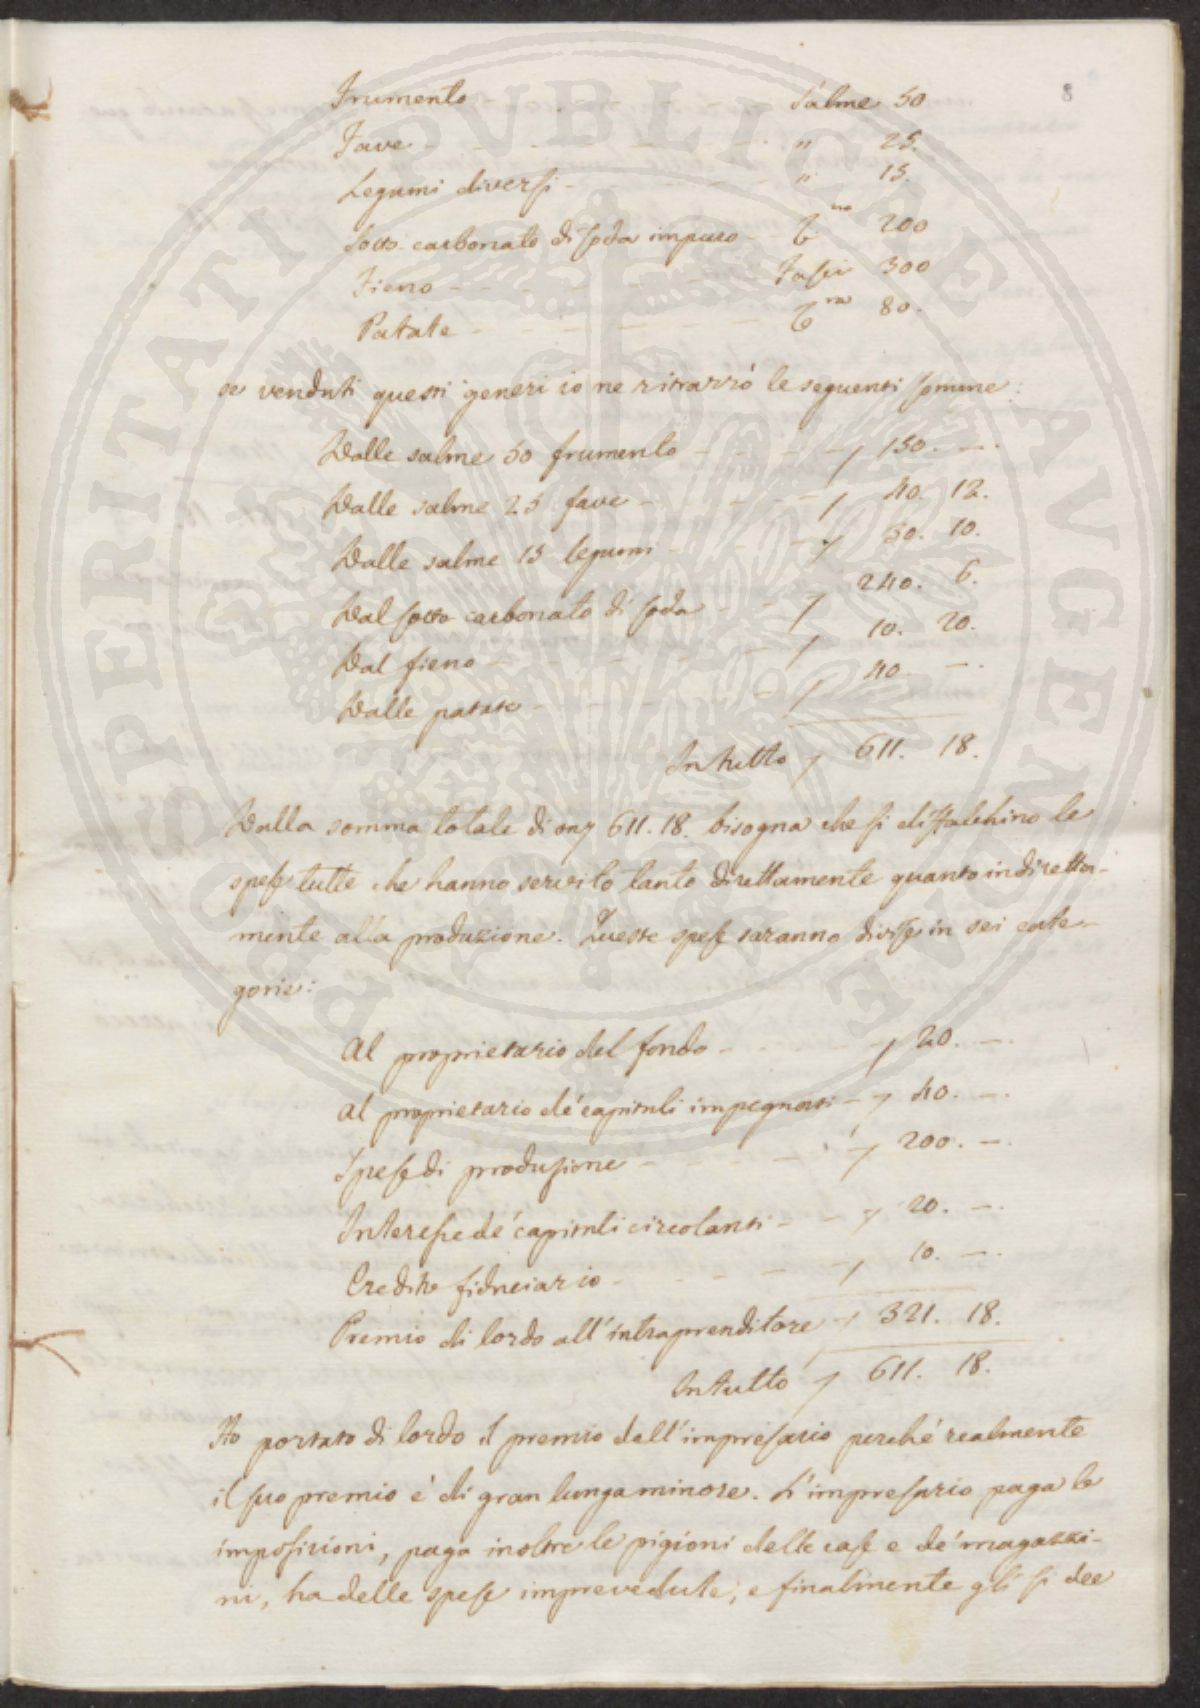 8
Frumento - - - - - Salme 50
Fave - - - - - - - " 25.
Legumi diversi - - - - - " 15.
Sotto carbonato di soda impuro - - 200
Fieno - - - - - - - Fasci 300
Patate - - - - - - - 80.
se venduti questi generi io ne ritrarrò le seguenti somme:
Dalle salme 50 frumento - - - - 150. —.
Dalle salme 25 fave - - - - - 40. 12.
Dalle salme 15 legumi - - - - 10.
Dal sotto carbonato di soda - - 240. 6.
Dal fieno - - - - - - 10. 20.
Dalle patate - - - - - 40. —.
In tutto 611. 18.
Dalla somma totale di onz 611. 18. bisogna che si diffalchino le
spese tutte che hanno servito tanto direttamente quanto indiretta-
mente alla produzione. Queste spese saranno divise in sei cate-
gorie:
Al proprietario del fondo - - - - 20. —.
Al proprietario de' capitali impegnati - 40. —.
Spese di produzione - - - - - 200. —.
Interesse de' capitali circolanti - - 20. —.
Credito fiduciario - - - - - 10. —.
Premio di lordo all'intraprenditore - 321. 18.
In tutto 611. 18.
Ho portato di lordo il premio dell'impresario perché realmente
il suo premio è di gran lunga minore. L'impresario paga le
imposizioni, paga inoltre le pigioni delle case e de' magazzi-
ni, ha delle spese imprevedute, e finalmente gli si dee
PROSPERITATI PVBLICAE AVGENDAE